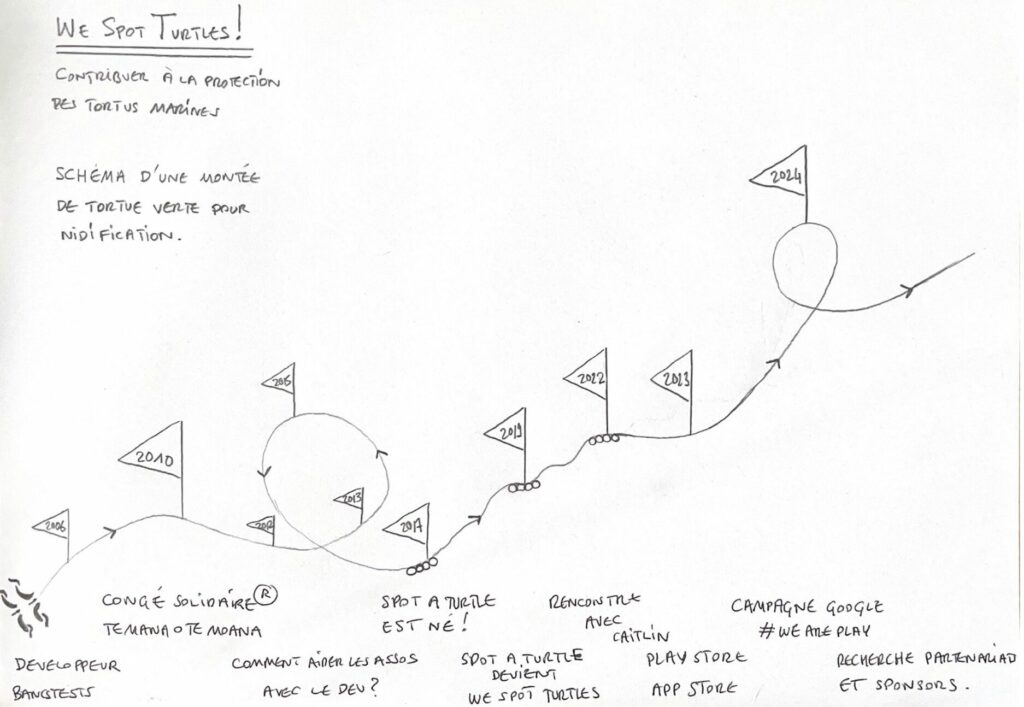 WE SPOT TURTLES!
CONTRIBUER À LA PROTECTION
DES TORTUS MARINES
SCHÉMA D'UNE MONTÉE
DE TORTUE VERTE POUR
NIDIFICATION.
2024
2015
2022
2023
2010
2019
2006
2012
2013
2017
CONGÉ SOLIDAIRE ®
TE MANA O TE MOANA
SPOT A TURTLE
EST NÉ !
RENCONTRE
AVEC
CAITLIN
CAMPAGNE GOOGLE
#WEAREPLAY
DEVELOPPEUR
BANCSTESTS
COMMENT AIDER LES ASSOS
AVEC LE DEV ?
SPOT A TURTLE
DEVIENT
WE SPOT TURTLES
PLAY STORE
APP STORE
RECHERCHE PARTENARIAD
ET SPONSORS.